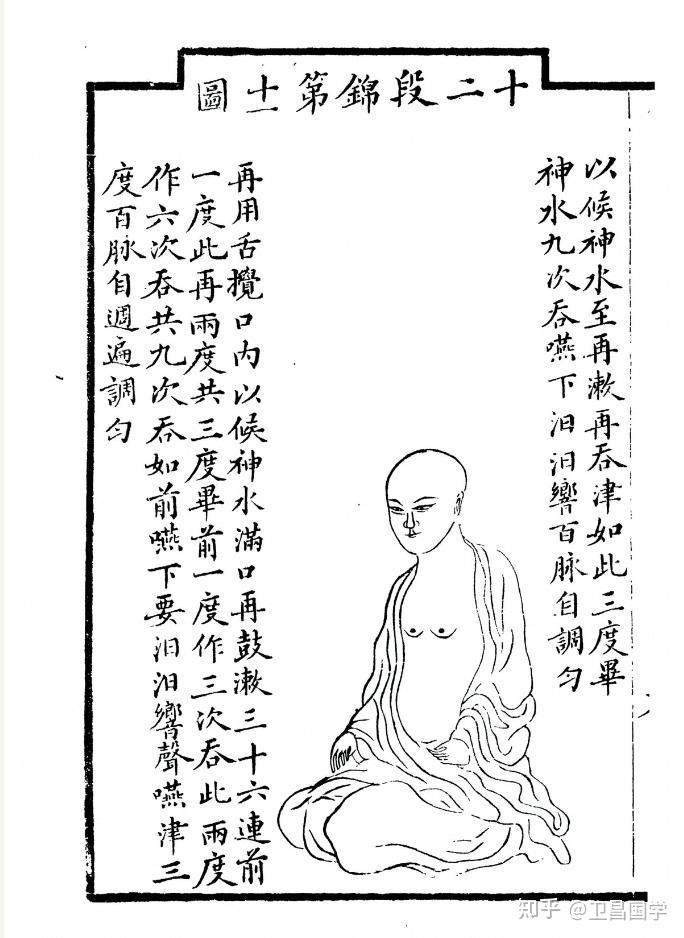 十二段錦第十一圖
以候神水至再漱再吞津如此三度畢
神水九次吞嚥下汩汩響百脉自調勻
再用舌攪口內以候神水滿口再鼓漱三十六連前
一度此再兩度共三度畢前一度作三次吞此兩度
作六次吞共九次吞如前嚥下要汩汩響聲嚥津三
度百脉自週遍調勻
知乎 @卫昌国学